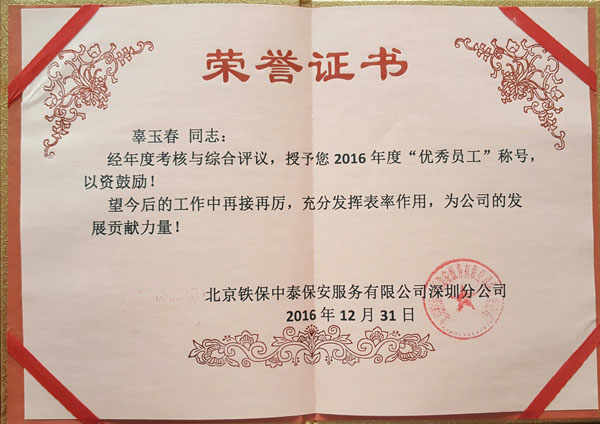 荣誉证书
辜玉春 同志：
经年度考核与综合评议，授予您 2016 年度“优秀员工”称号，
以资鼓励！
望今后的工作中再接再厉，充分发挥表率作用，为公司的发
展贡献力量！
北京铁保中泰保安服务有限公司深圳分公司
2016 年 12 月 31 日